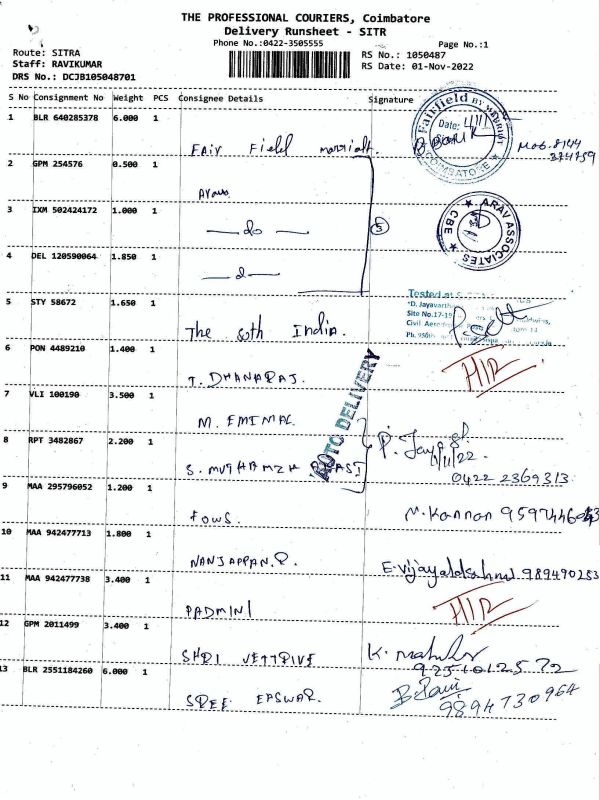 THE PROFESSIONAL COURIERS, Coimbatore
Delivery Runsheet - SITR
Phone No.:0422-3505555
Page No.:1
Route: SITRA
RS No.: 1050487
Staff: RAVIKUMAR
RS Date: 01-Nov-2022
DRS No.: DCJB105048701
S No Consignment No Weight PCS Consignee Details Signature
1 BLR 640285378 6.000 1
Fair Field marriott.
Fairfield BY MARRIOTT
Date: 4/11
COIMBATORE
Mob. 8144
374759
2 GPM 254576 0.500 1
3 IXM 502424172 1.000 1
do
5
ARAV ASSOCIATES
CBE
4 DEL 120590064 1.850 1
5 STY 58672 1.650 1
The South India.
Tested
"D. Jayavarthan
Site No.17-19
Civil Aero
6 PON 4489210 1.400 1
T. DHANARAJ.
7 VLI 100190 3.500 1
M. EMIMAL
AUTO DELIVERY
8 RPT 3482867 2.200 1
P. Jaya
0422 2369313
9 MAA 295796052 1.200 1
Fows.
M. Kannan
10 MAA 942477713 1.800 1
NANJAPPAN.R.
989490253
11 MAA 942477738 3.400 1
PADMINI
12 GPM 2011499 3.400 1
SHRI VETTRIVE
9251012572
13 BLR 2551184260 6.000 1
SREE EASWAR.
9894730964